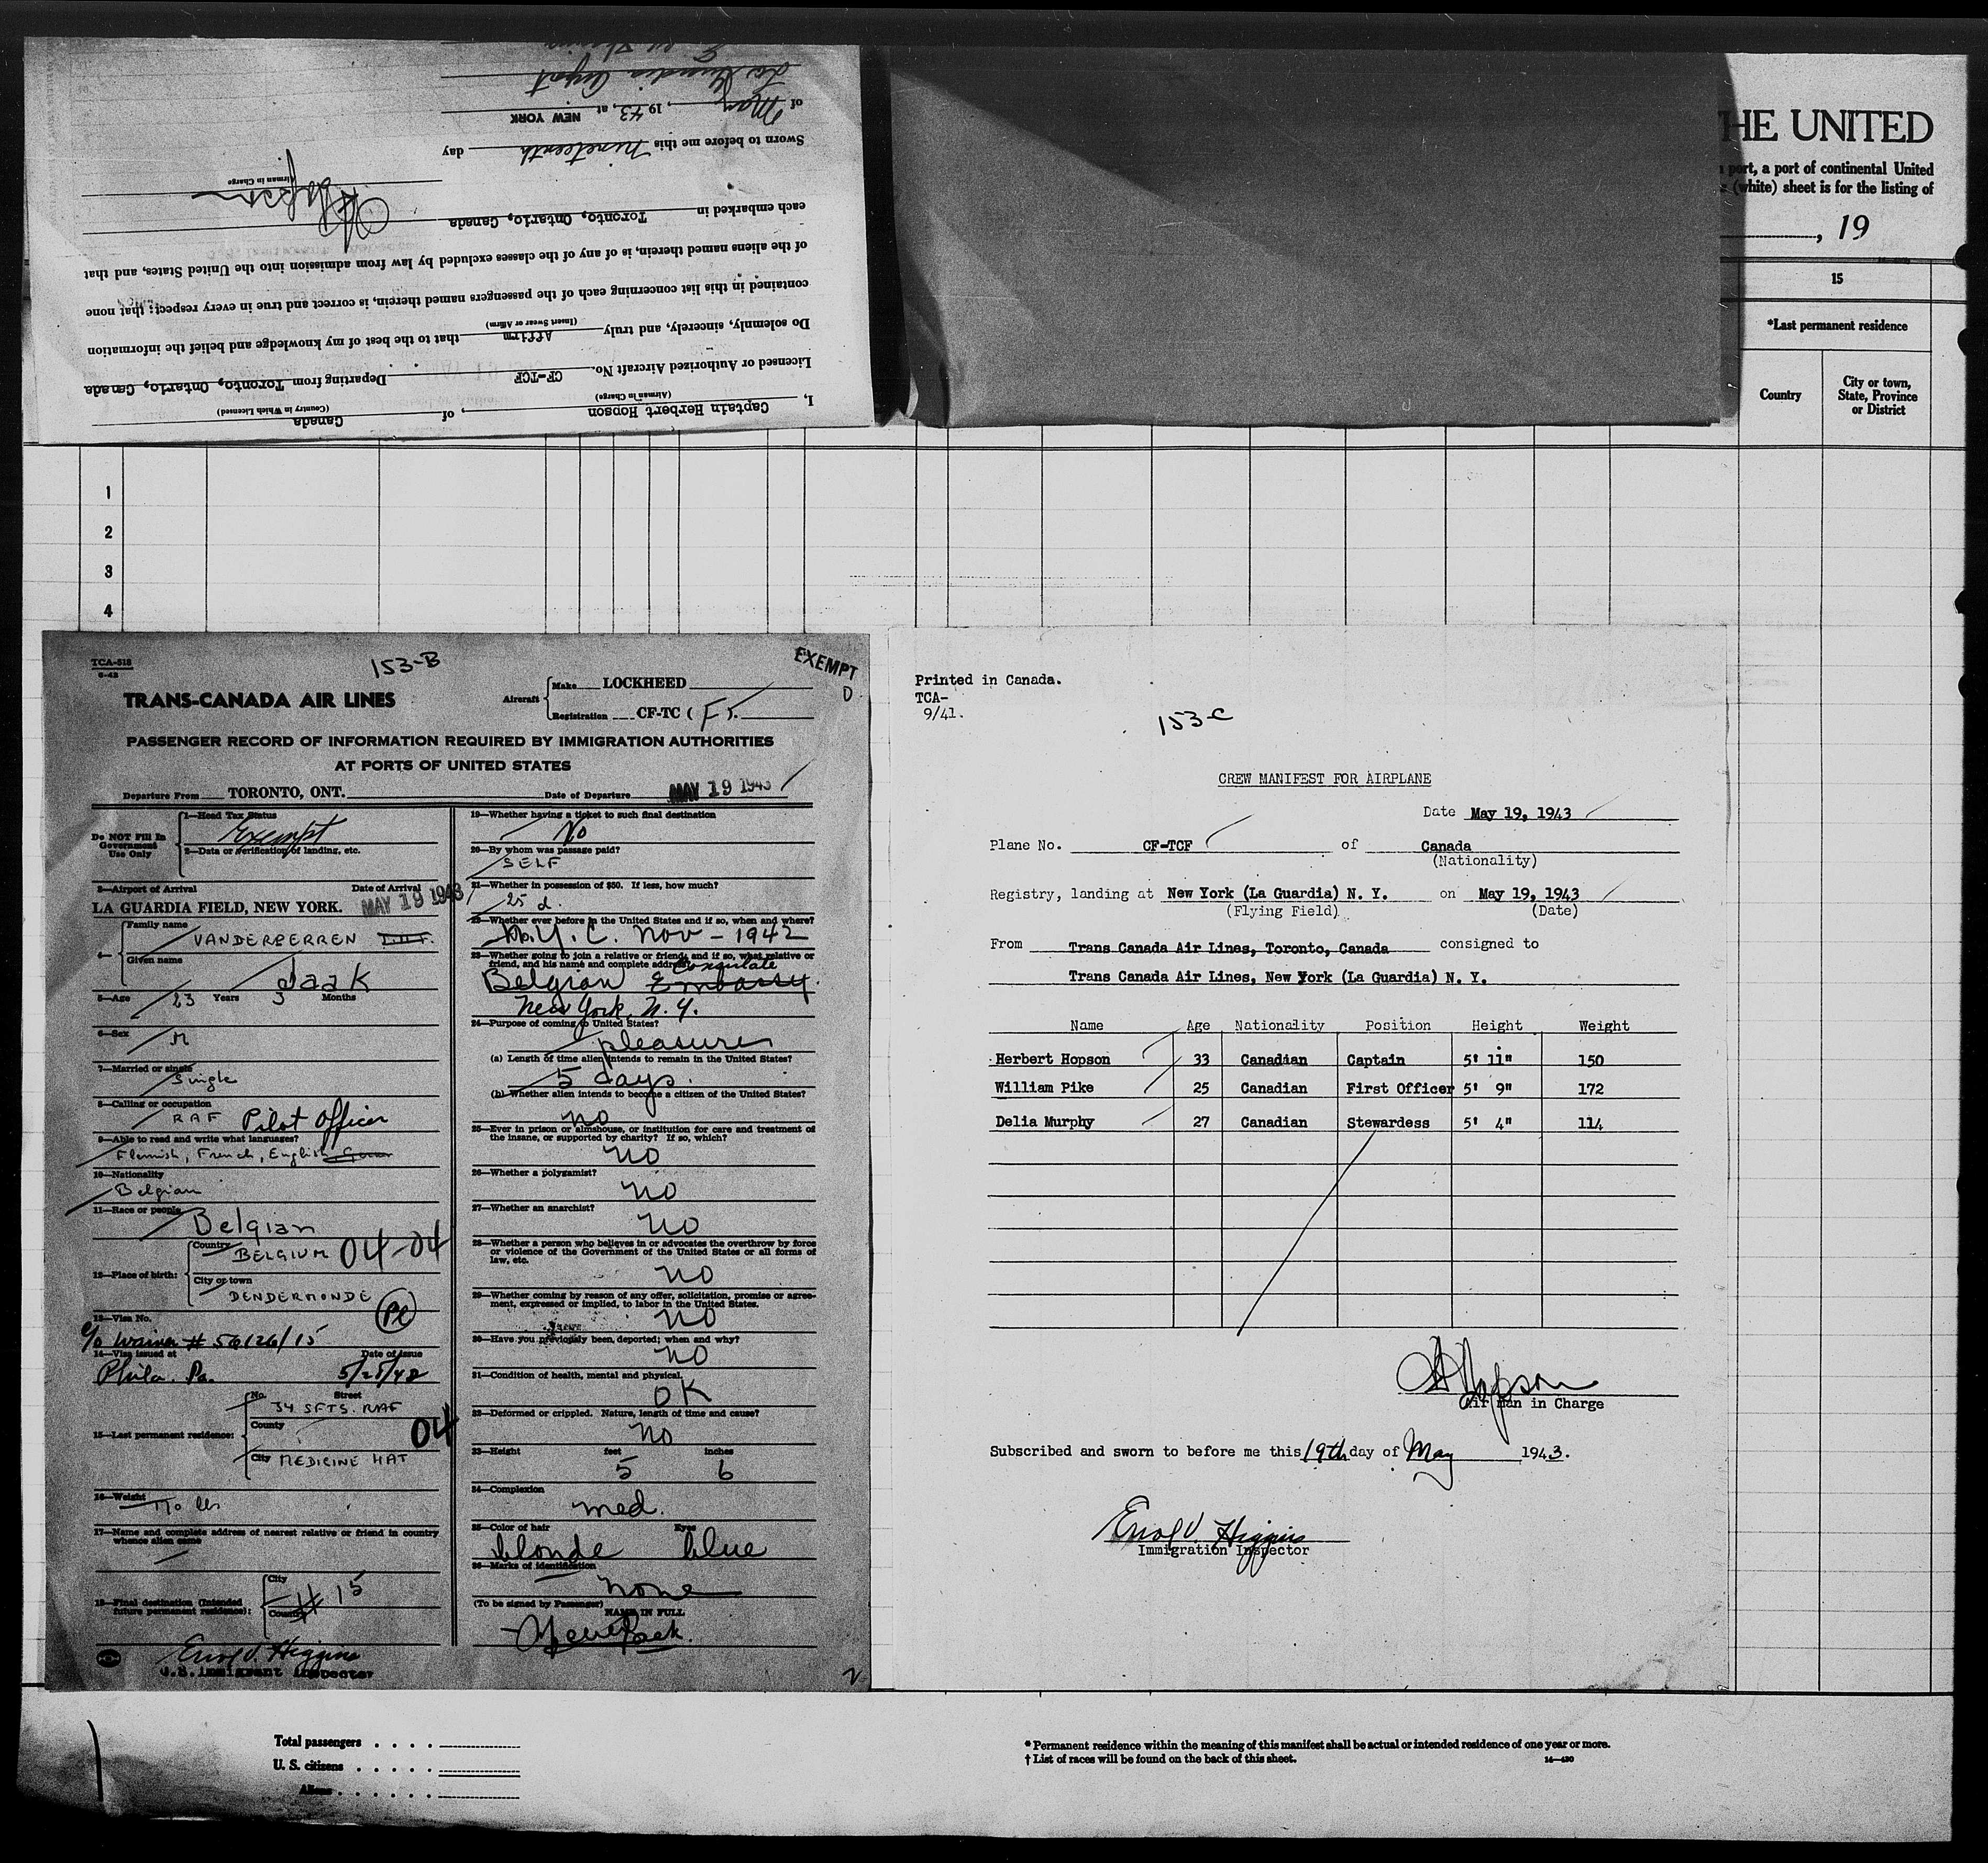 I, Captain Herbert Hopson, of Canada
(Airman in Charge) (Country in Which Licensed)
Licensed or Authorized Aircraft No. CF-TCF Departing from Toronto, Ontario, Canada
Do solemnly, sincerely, and truly Affirm that to the best of my knowledge and belief the information
(Insert Swear or Affirm)
contained in this list concerning each of the passengers named therein, is correct and true in every respect; that none
of the aliens named therein, is of any of the classes excluded by law from admission into the United States, and that
each embarked in Toronto, Ontario, Canada
H Hopson
Airman in Charge
Sworn to before me this nineteenth day
of May, 1943, at NEW YORK
La Guardia Airport
THE UNITED
port, a port of continental United
(white) sheet is for the listing of
, 19
15
*Last permanent residence
Country
City or town,
State, Province
or District
1
2
3
4
TCA-518
153-B
EXEMPT
D
TRANS-CANADA AIR LINES
Aircraft
Make LOCKHEED
Registration CF-TC ( F ).
PASSENGER RECORD OF INFORMATION REQUIRED BY IMMIGRATION AUTHORITIES
AT PORTS OF UNITED STATES
Departure From TORONTO, ONT. Date of Departure MAY 19 1943
Do NOT Fill In
Government
Use Only
1—Head Tax Status
Exempt
2—Data or verification of landing, etc.
3—Airport of Arrival Date of Arrival
LA GUARDIA FIELD, NEW YORK. MAY 19 1943
4—
Family name
VANDERPERREN
Given name
Jaak
5—Age 23 Years 3 Months
6—Sex
M
7—Married or single
Single
8—Calling or occupation
RAF Pilot Officer
9—Able to read and write what languages?
Flemish, French, English
10—Nationality
Belgian
11—Race or people
Belgian
12—Place of birth:
Country
BELGIUM 04-04
City or town
DENDERMONDE
13—Visa No.
c/o Waiver # 56126/15
14—Visa issued at Date of Issue
Phila. Pa. 5/25/42
15—Last permanent residence:
No. Street
34 SFTS. RAF
County
04
City MEDICINE HAT
16—Weight
17—Name and complete address of nearest relative or friend in country
whence alien came
18—Final destination (Intended
future permanent residence):
City
Country
# 15
Errol V. Higgins
U.S. Immigrant Inspector
19—Whether having a ticket to such final destination
No
20—By whom was passage paid?
SELF
21—Whether in possession of $50. If less, how much?
25 d.
22—Whether ever before in the United States and if so, when and where?
N.Y.C. Nov - 1942
23—Whether going to join a relative or friend, and if so, what relative or
friend, and his name and complete address
Consulate
Belgian Embassy.
New York, N.Y.
24—Purpose of coming to United States?
pleasure
(a) Length of time alien intends to remain in the United States?
5 days.
(b) Whether alien intends to become a citizen of the United States?
no
25—Ever in prison or almshouse, or institution for care and treatment of
the insane, or supported by charity? If so, which?
no
26—Whether a polygamist?
no
27—Whether an anarchist?
no
28—Whether a person who believes in or advocates the overthrow by force
or violence of the Government of the United States or all forms of
law, etc.
no
29—Whether coming by reason of any offer, solicitation, promise or agree-
ment, expressed or implied, to labor in the United States.
no
30—Have you previously been deported; when and why?
no
31—Condition of health, mental and physical.
OK
32—Deformed or crippled. Nature, length of time and cause?
no
33—Height feet inches
5 6
34—Complexion
med.
35—Color of hair Eyes
blonde blue
36—Marks of identification
none
(To be signed by Passenger) NAME IN FULL
Printed in Canada.
TCA-
9/41.
153-C
CREW MANIFEST FOR AIRPLANE
Date May 19, 1943
Plane No. CF-TCF of Canada
(Nationality)
Registry, landing at New York (La Guardia) N. Y. on May 19, 1943
(Flying Field) (Date)
From Trans Canada Air Lines, Toronto, Canada consigned to
Trans Canada Air Lines, New York (La Guardia) N. Y.
Name Age Nationality Position Height Weight
Herbert Hopson 33 Canadian Captain 5' 11" 150
William Pike 25 Canadian First Officer 5' 9" 172
Delia Murphy 27 Canadian Stewardess 5' 4" 114
H Hopson
Air Man in Charge
Subscribed and sworn to before me this 19th day of May 1943.
Errol V. Higgins
Immigration Inspector
Total passengers . . . .
U. S. citizens . . . . .
Aliens . . . . . .
* Permanent residence within the meaning of this manifest shall be actual or intended residence of one year or more.
† List of races will be found on the back of this sheet.